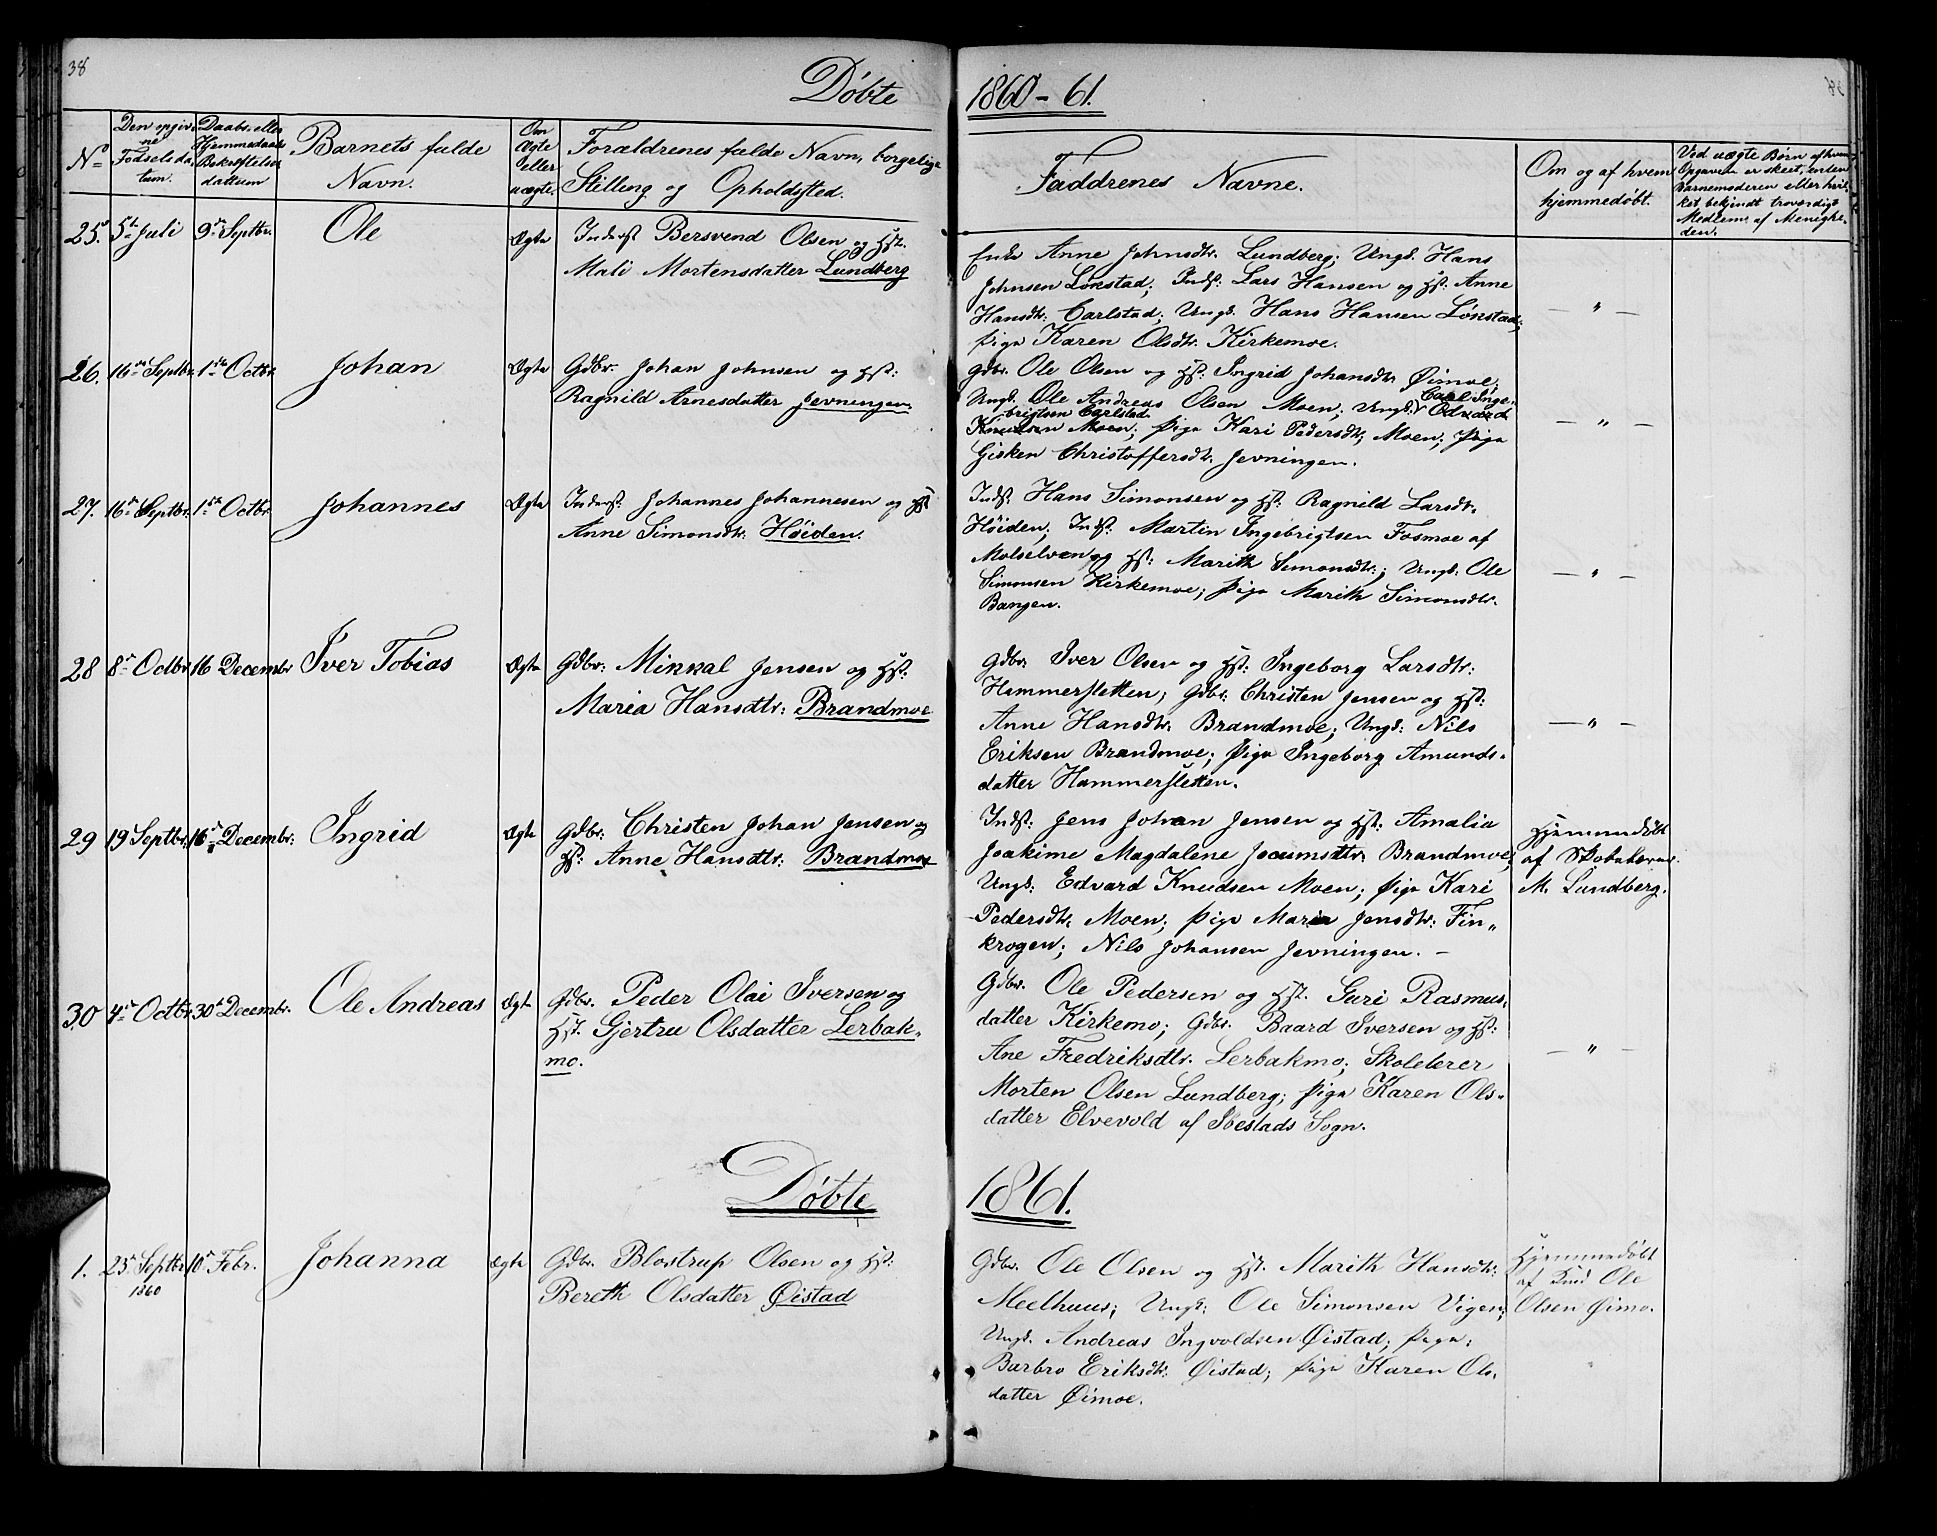 38
Døbte
1860-61.
No
Den opgiv-
ne
Fødselsda-
tum.
Daabs- eller
Hjemmedaabs
Bekræftelses
dattum
Barnets fulde
Navn.
Om
Ægte
eller
uægte.
Forældrenes fulde Navn, borgelige
Stilling og Opholdssted.
Faddrenes Navne.
Om og af hvem
hjemmedøbt.
Ved uægte Børn af hvem
Opgaven er skeet, enten
Barnemoderen eller hvil-
ket bekjendt troværdigt
Medlem af Menighe-
den.
25. 5te Juli 9de Septbr. Ole Ægte Inderst Bersvend Olsen og Hst.
Mali Mortensdatter Lundberg
Enke Anne Johnsdtr. Lundberg; Ungk. Hans
Johnsen Lønstad; Indst: Lars Hansen og Hst: Anne
Hansdtr: Carlstad; Ungk. Hans Hansen Lønstad;
Pige Karen Olsdtr. Kirkemoe.
— " —
26. 16de Septbr. 1ste Octbr. Johan Ægte Gdbr. Johan Johnsen og Hst:
Ragnild Arnesdatter Jevningen.
Gdbr. Ole Olsen og Hst: Ingrid Johansdtr. Øimoe;
Ungk. Ole Andreas Olsen Moen; Ungk. Carl Inge-
brigtsen Carlstad Edvard
Knudsen Moen; Pige Kari Pedersdtr; Moen; Pige
Gjøken Christoffersdtr. Jevningen.
— " —
27. 16de Septbr. 1ste Octbr. Johannes Ægte Inderst: Johannes Johannesen og Hst
Anne Simonsdtr: Høiden.
Indst. Hans Simonsen og Hst: Ragnild Larsdtr.
Høiden; Indst: Martin Ingebrigtsen Fosmoe af
Molselven og Hst: Marith Simonsdtr.; Ungk: Ole
Simonsen Kirkemoe; Pige Marith Simonsdtr.
Bangen.
— " —
28 8de Octbr. 16 Decembr Iver Tobias Ægte Gdbr: Mikkal Jensen og Hst:
Maria Hansdtr: Brandmoe
Gdbr Iver Olsen og Hst: Ingeborg Larsdtr:
Hammersletten; Gdbr: Christen Jensen og Hst:
Anne Hansdtr: Brandmoe; Ungk: Nils
Eriksen Brandmoe; Pige Ingeborg Amunds-
datter Hammersletten.
— " —
29 19 Septbr: 16de Decembr: Ingrid Ægte Gdbr: Christen Johan Jensen og
Hst: Anne Hansdtr: Brandmoe
Indst: Jens Johan Jensen og Hst: Amalia
Joakime Magdalene Jocumsdtr. Brandmoe;
Ungk: Edvard Knudsen Moen; Pige Kari
Pedersdtr. Moen; Pige Maria Jensdtr: Fin„
krogen; Nils Johansen Jevningen. —
Hjemmedøbt
af Skolelærer
M. Lundberg.
30 4de Octbr. 30te Decembr. Ole Andreas Ægte Gdbr. Peder Olai Iversen og
Hst. Gjertru Olsdatter Lerbak-
mo.
Gdbr. Ole Pedersen og Hst. Guri Rasmus-
datter Kirkemo; Gdbr. Baard Iversen og Hst:
Ane Fredriksdtr. Lerbakmo; Skolelerer
Morten Olsen Lundberg; Pige Karen Ols-
datter Elvevold af Ibestads Sogn.
— " —
Døbte
1861.
1. 25de Septbr 10de Febr. Johanna Ægte Gdbr. Blostrup Olsen og Hst:
1860 Bereth Olsdatter Øistad
Gdbr. Ole Olsen og Hst. Marith Hansdtr:
Meelhuus; Ungk: Ole Simonsen Vigen;
Ungk. Andreas Ingvoldsen Øistad; Pige:
Barbro Eriksdtr. Øistad; Pige Karen Ols-
datter Øimoe.
Hjemmedøbt
af Ole
Olsen Øimo.